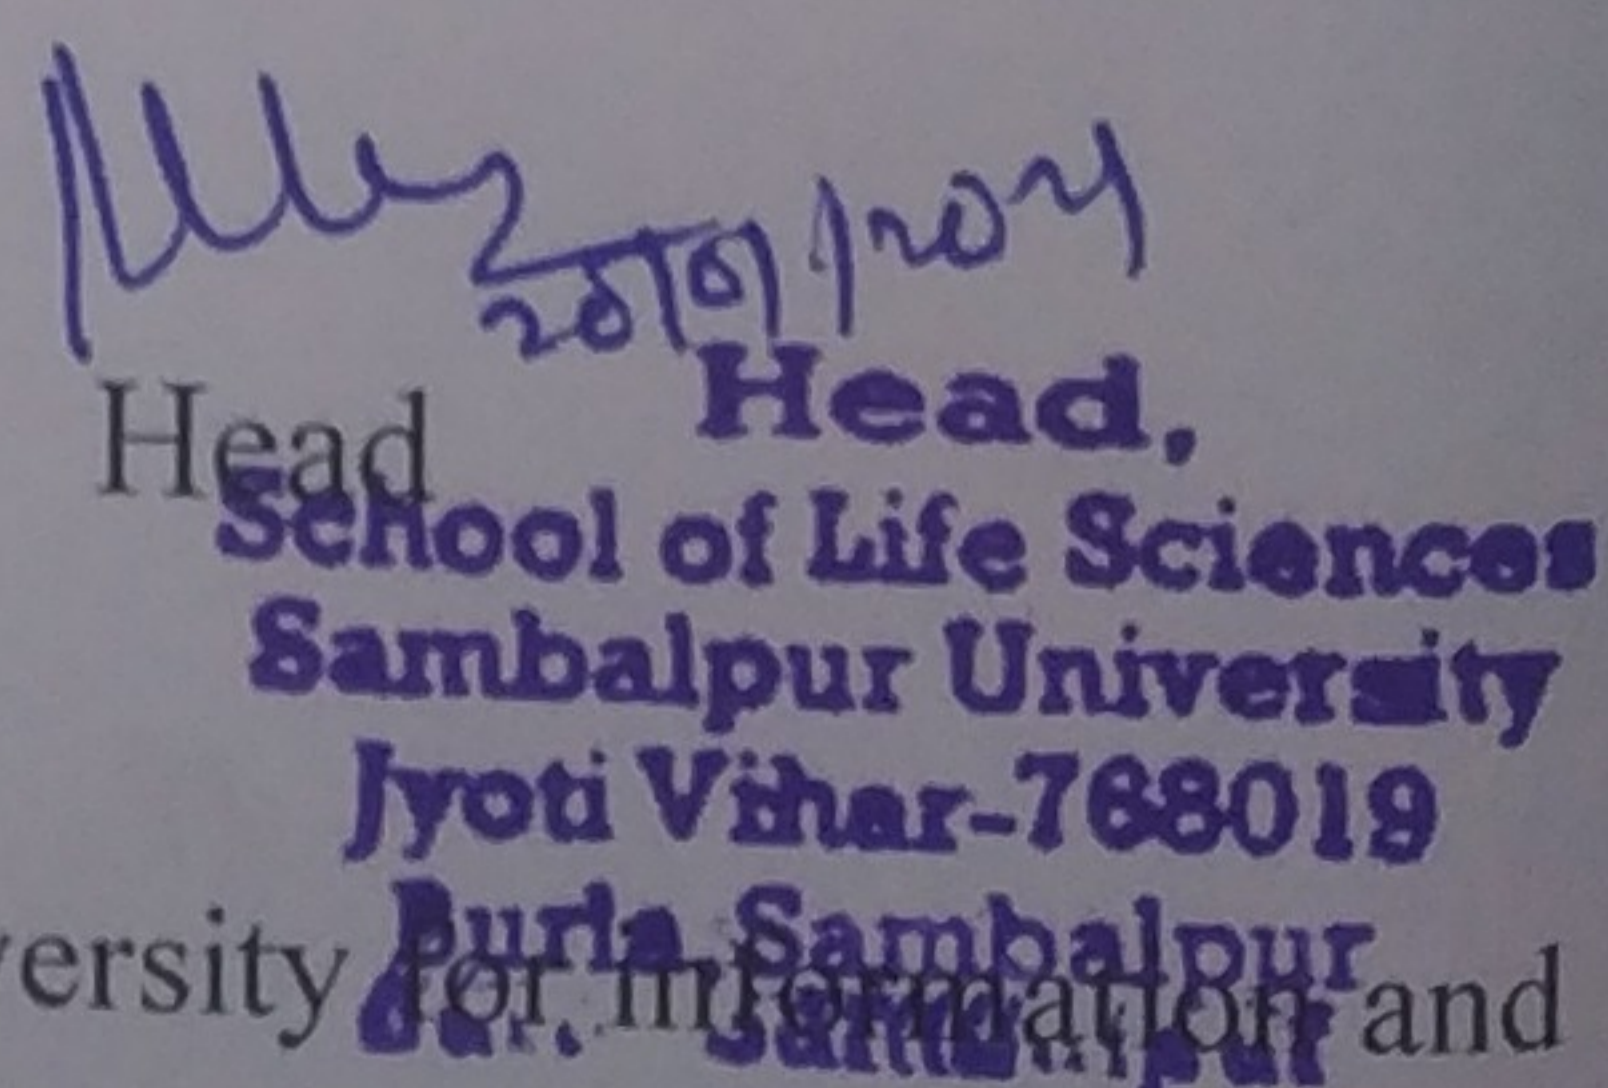 Head
Head,
School of Life Sciences
Sambalpur University
Jyoti Vihar-768019
Burla, Sambalpur
ersity for information and